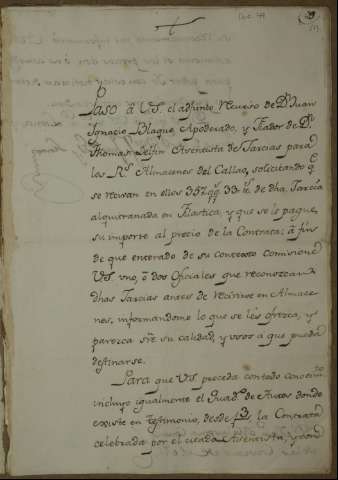 Paso à V.S. el adjunto Recurso de Dn. Juan
Ignacio Blaque Apoderado, y Fiador de Dn.
Thomas Delfin Asentista de Jarcias para
los Rs. Almacenes del Callao, solicitando qe.
se reciban en ellos 352 qqs. 33 lis. de dha Jarcia
alquitranada en Filastica, y que se le pague
su importe al precio de la Contrata: à fin
de que enterado de su contexto comisione
V.S. uno, ò dos Oficiales que reconozcan
dhas Jarcias antes de recivirse en Almace-
nes, informandome lo que se les ofrezca, y
parezca sre. su calidad, y usos à que pueda
destinarse.
Para que V.S. proceda con todo conocimto.
incluyo igualmente el Quadno. de Autos donde
existe en testimonio, desde f 3 la Contrata
celebrada por el citado Asentista, y